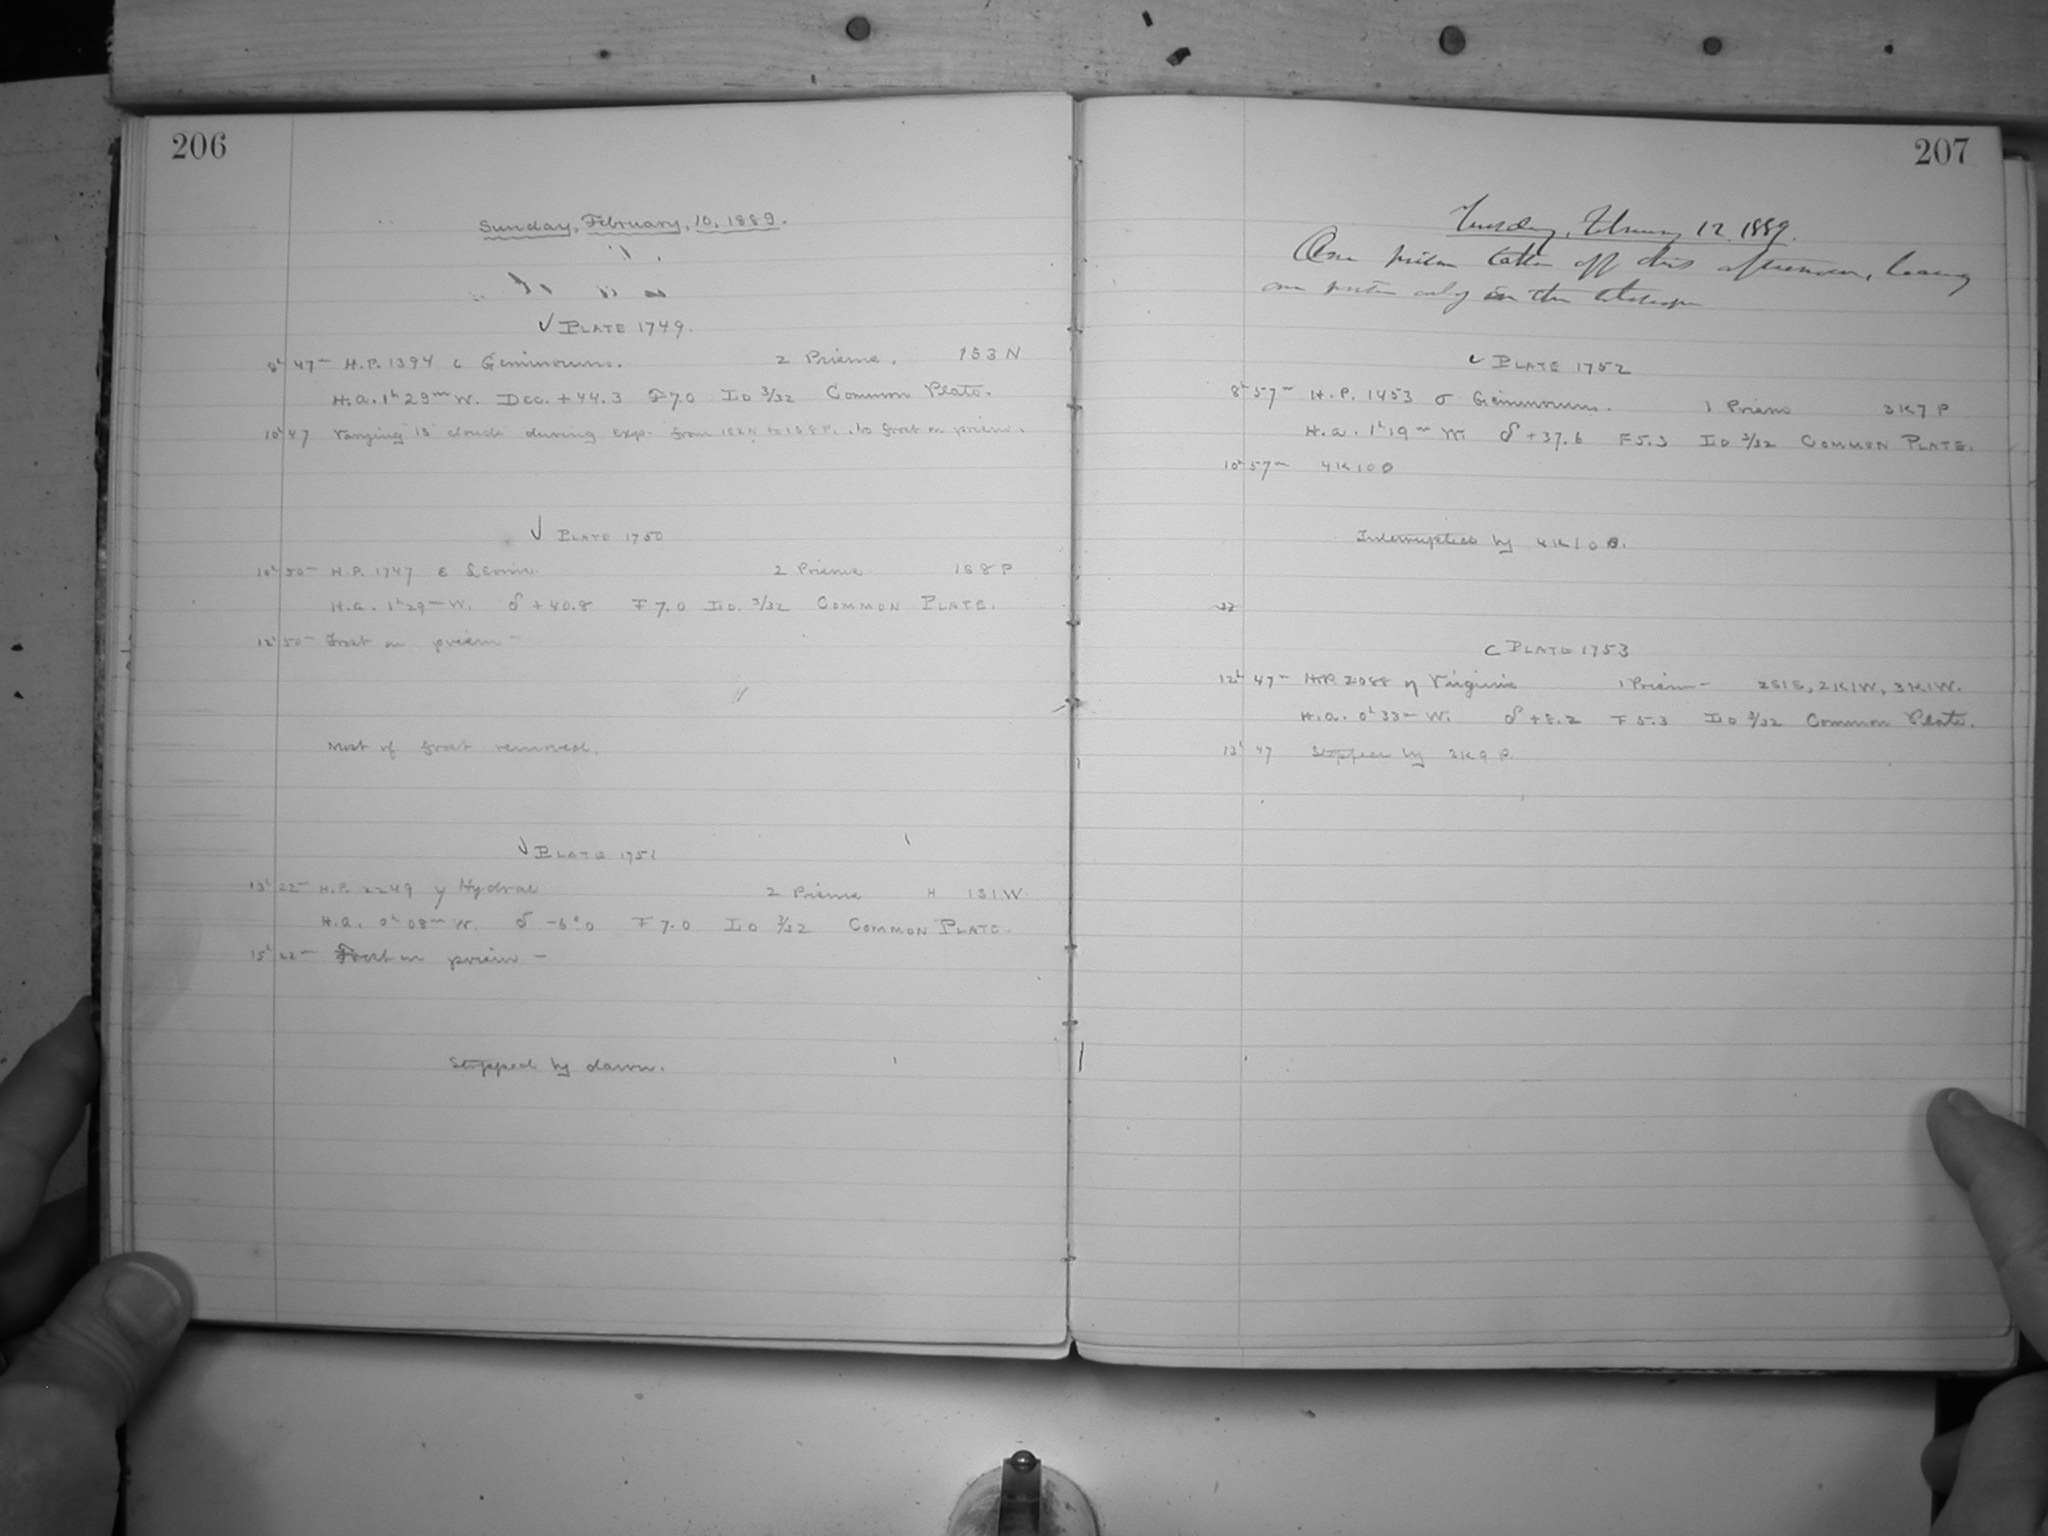 206
Sunday, February, 10, 1889.
√ PLATE 1749.
8h 47m H.P. 1394 c Geminorum. 2 Prisms. 1S3N
H.a. 1h 29m W. Dec. +44.3 F 7.0 I.o 3/32 Common Plate.
10h 47 Varying 1S clouds during exp. from to frost on prism.
√ PLATE 1750
10h 50m H.P. 1747 ε Leonis. 2 Prisms. 1S8P
H.a. 1h 29m W. δ +40.8 F 7.0 I.o. 3/32 COMMON PLATE.
12h 50m Frost on prism —
Most of frost removed.
√ PLATE 1751
13h 22m H.P. 2249 γ Hydrae 2 Prisms H 1S1W
H.a. 0h 08m W. δ -6°.0 F 7.0 I.o 3/32 COMMON PLATE.
15h 22m Frost on prism —
Stopped by dawn.
207
Tuesday, February 12. 1889.
One prism taken off this afternoon, leaving
one prism only in the telescope
PLATE 1752
8h 57m H.P. 1453 σ Geminorum. 1 Prism 3K7P
H.a. 1h 19m W. δ +37.6 F 5.3 I.o 3/32 COMMON PLATE.
10h 57m 4K100
Interrupted by 4K100.
PLATE 1753
12h 47m H.P. 2088 η Virginis 1 Prism — 2S1S, 2K1W, 3K1W.
H.a. 0h 33m W. δ +8.2 F 5.3 I.o 3/32 Common Plate.
13h 47 Stopped by 3K9P.